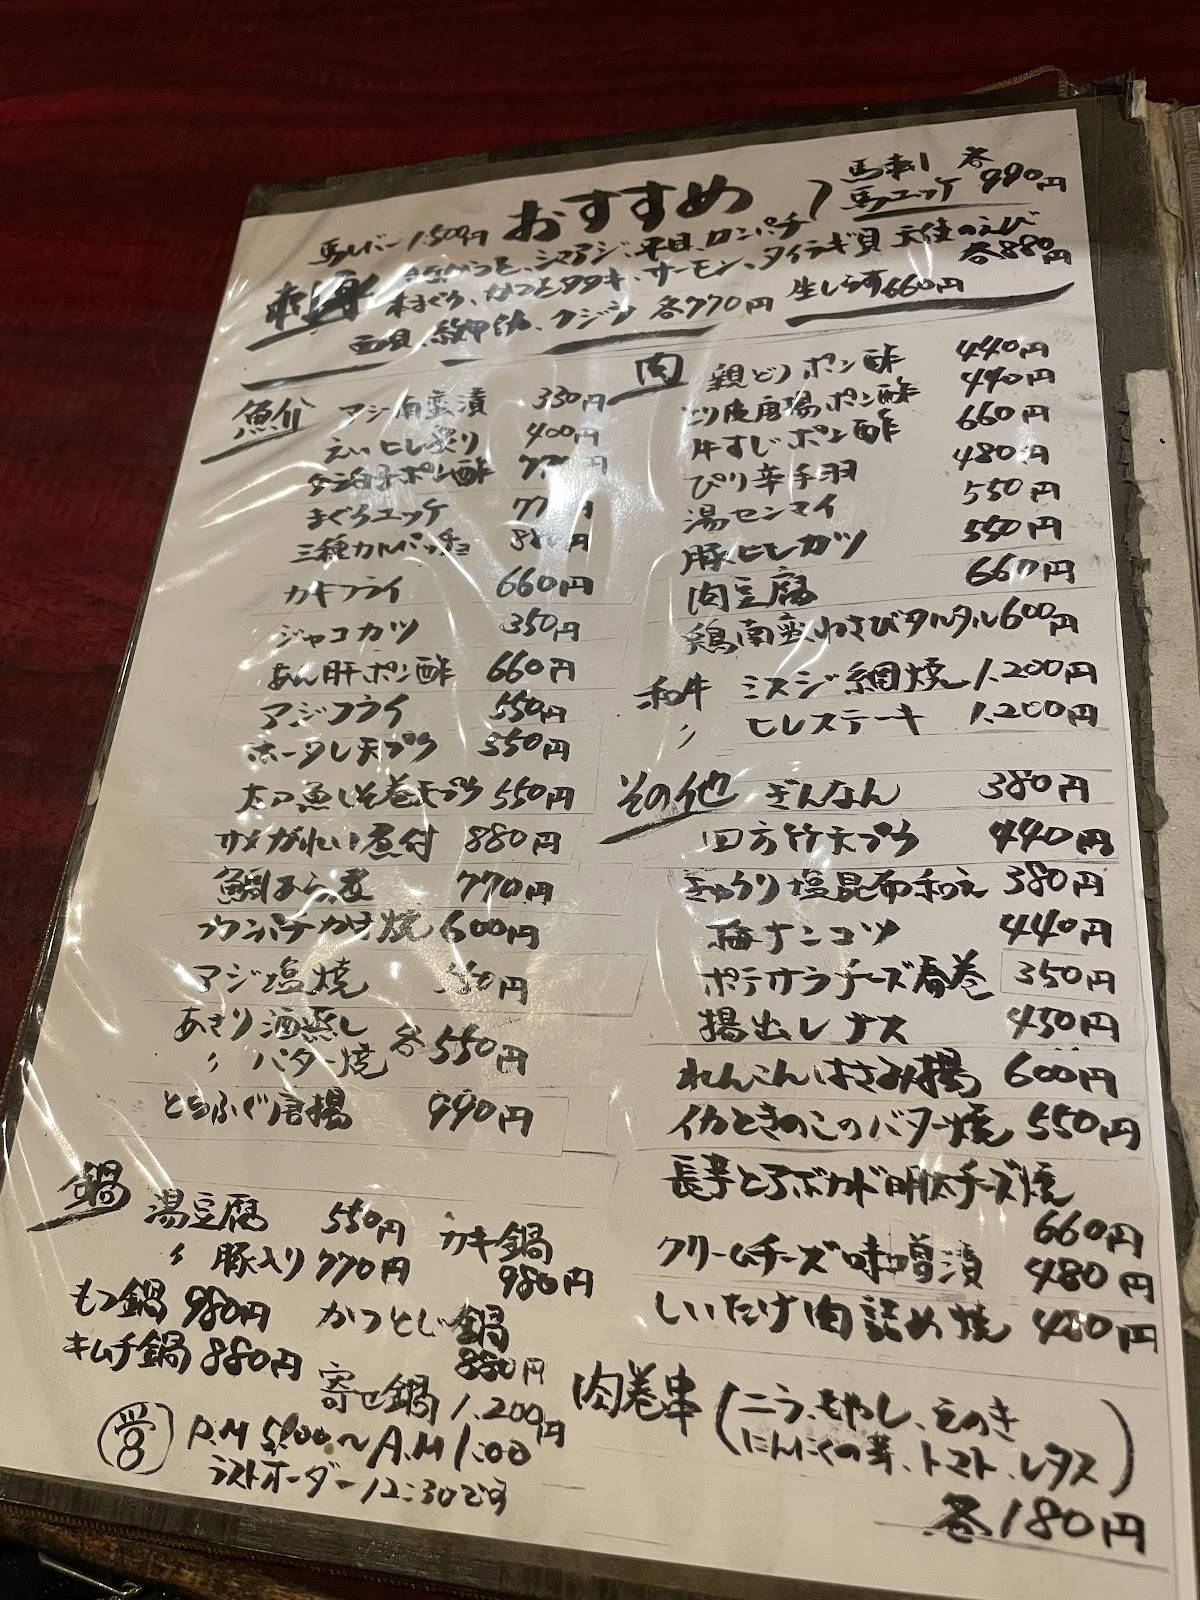 おすすめ
馬刺し 各
馬ユッケ 990円
馬レバー 1,500円
シマアジ、平目、ロンパチ
本まぐろ、かつおタタキ、サーモン、タイラギ貝 天使のえび
各880円
クジラ 各770円 生しらす660円
魚介
アジ南蛮漬 330円
えいヒレ炙り 400円
タラ白子ポン酢
まぐろユッケ
三種カルパッチョ
カキフライ 660円
ジャコカツ 350円
あん肝ポン酢 660円
アジフライ 550円
太刀魚しそ巻天プラ 550円
サメガレイ煮付 880円
鯛あら煮 770円
アジ塩焼
あさり酒蒸し
〃 バター焼 各550円
とらふぐ唐揚 990円
鍋
湯豆腐 550円
〃 豚入り 770円
もつ鍋 980円
キムチ鍋 880円
カキ鍋
980円
かつとじ鍋
880円
寄せ鍋 1,200円
営 P.M 5:00〜A.M 1:00
ラストオーダー 12:30です
肉
親どりポン酢 440円
とり皮唐揚ポン酢 440円
牛すじポン酢 660円
ぴり辛手羽 480円
湯センマイ 550円
豚ヒレカツ 550円
肉豆腐 660円
鶏南蛮わさびタルタル 600円
和牛 ミスジ網焼 1,200円
〃 ヒレステーキ 1,200円
その他
ぎんなん 380円
四方竹天プラ 440円
きゅうり塩昆布和え 380円
梅ナンコツ 440円
ポテサラチーズ春巻 350円
揚出しナス 450円
れんこんはさみ揚 600円
イカときのこのバター焼 550円
長芋とアボカド明太チーズ焼
660円
クリームチーズ味噌漬 480円
しいたけ肉詰め焼 480円
肉巻串
(ニラ、もやし、えのき
にんにくの芽、トマト、レタス)
各180円